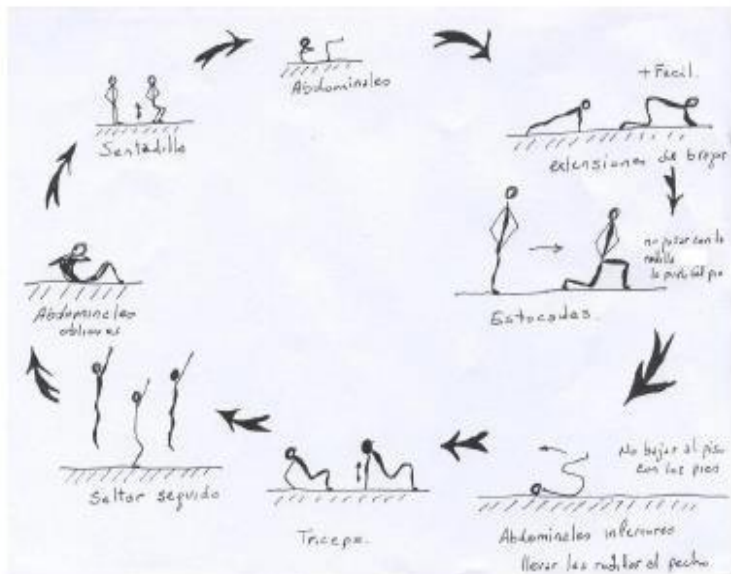 Abdominales
+ Facil.
extensiones de brazos
no pasar con la
rodilla
la punta del pie
Estocadas.
No bajar al piso
con los pies
Abdominales inferiores
llevar las rodillas al pecho.
Triceps.
Saltar seguido
Abdominales
oblicuos
Sentadilla